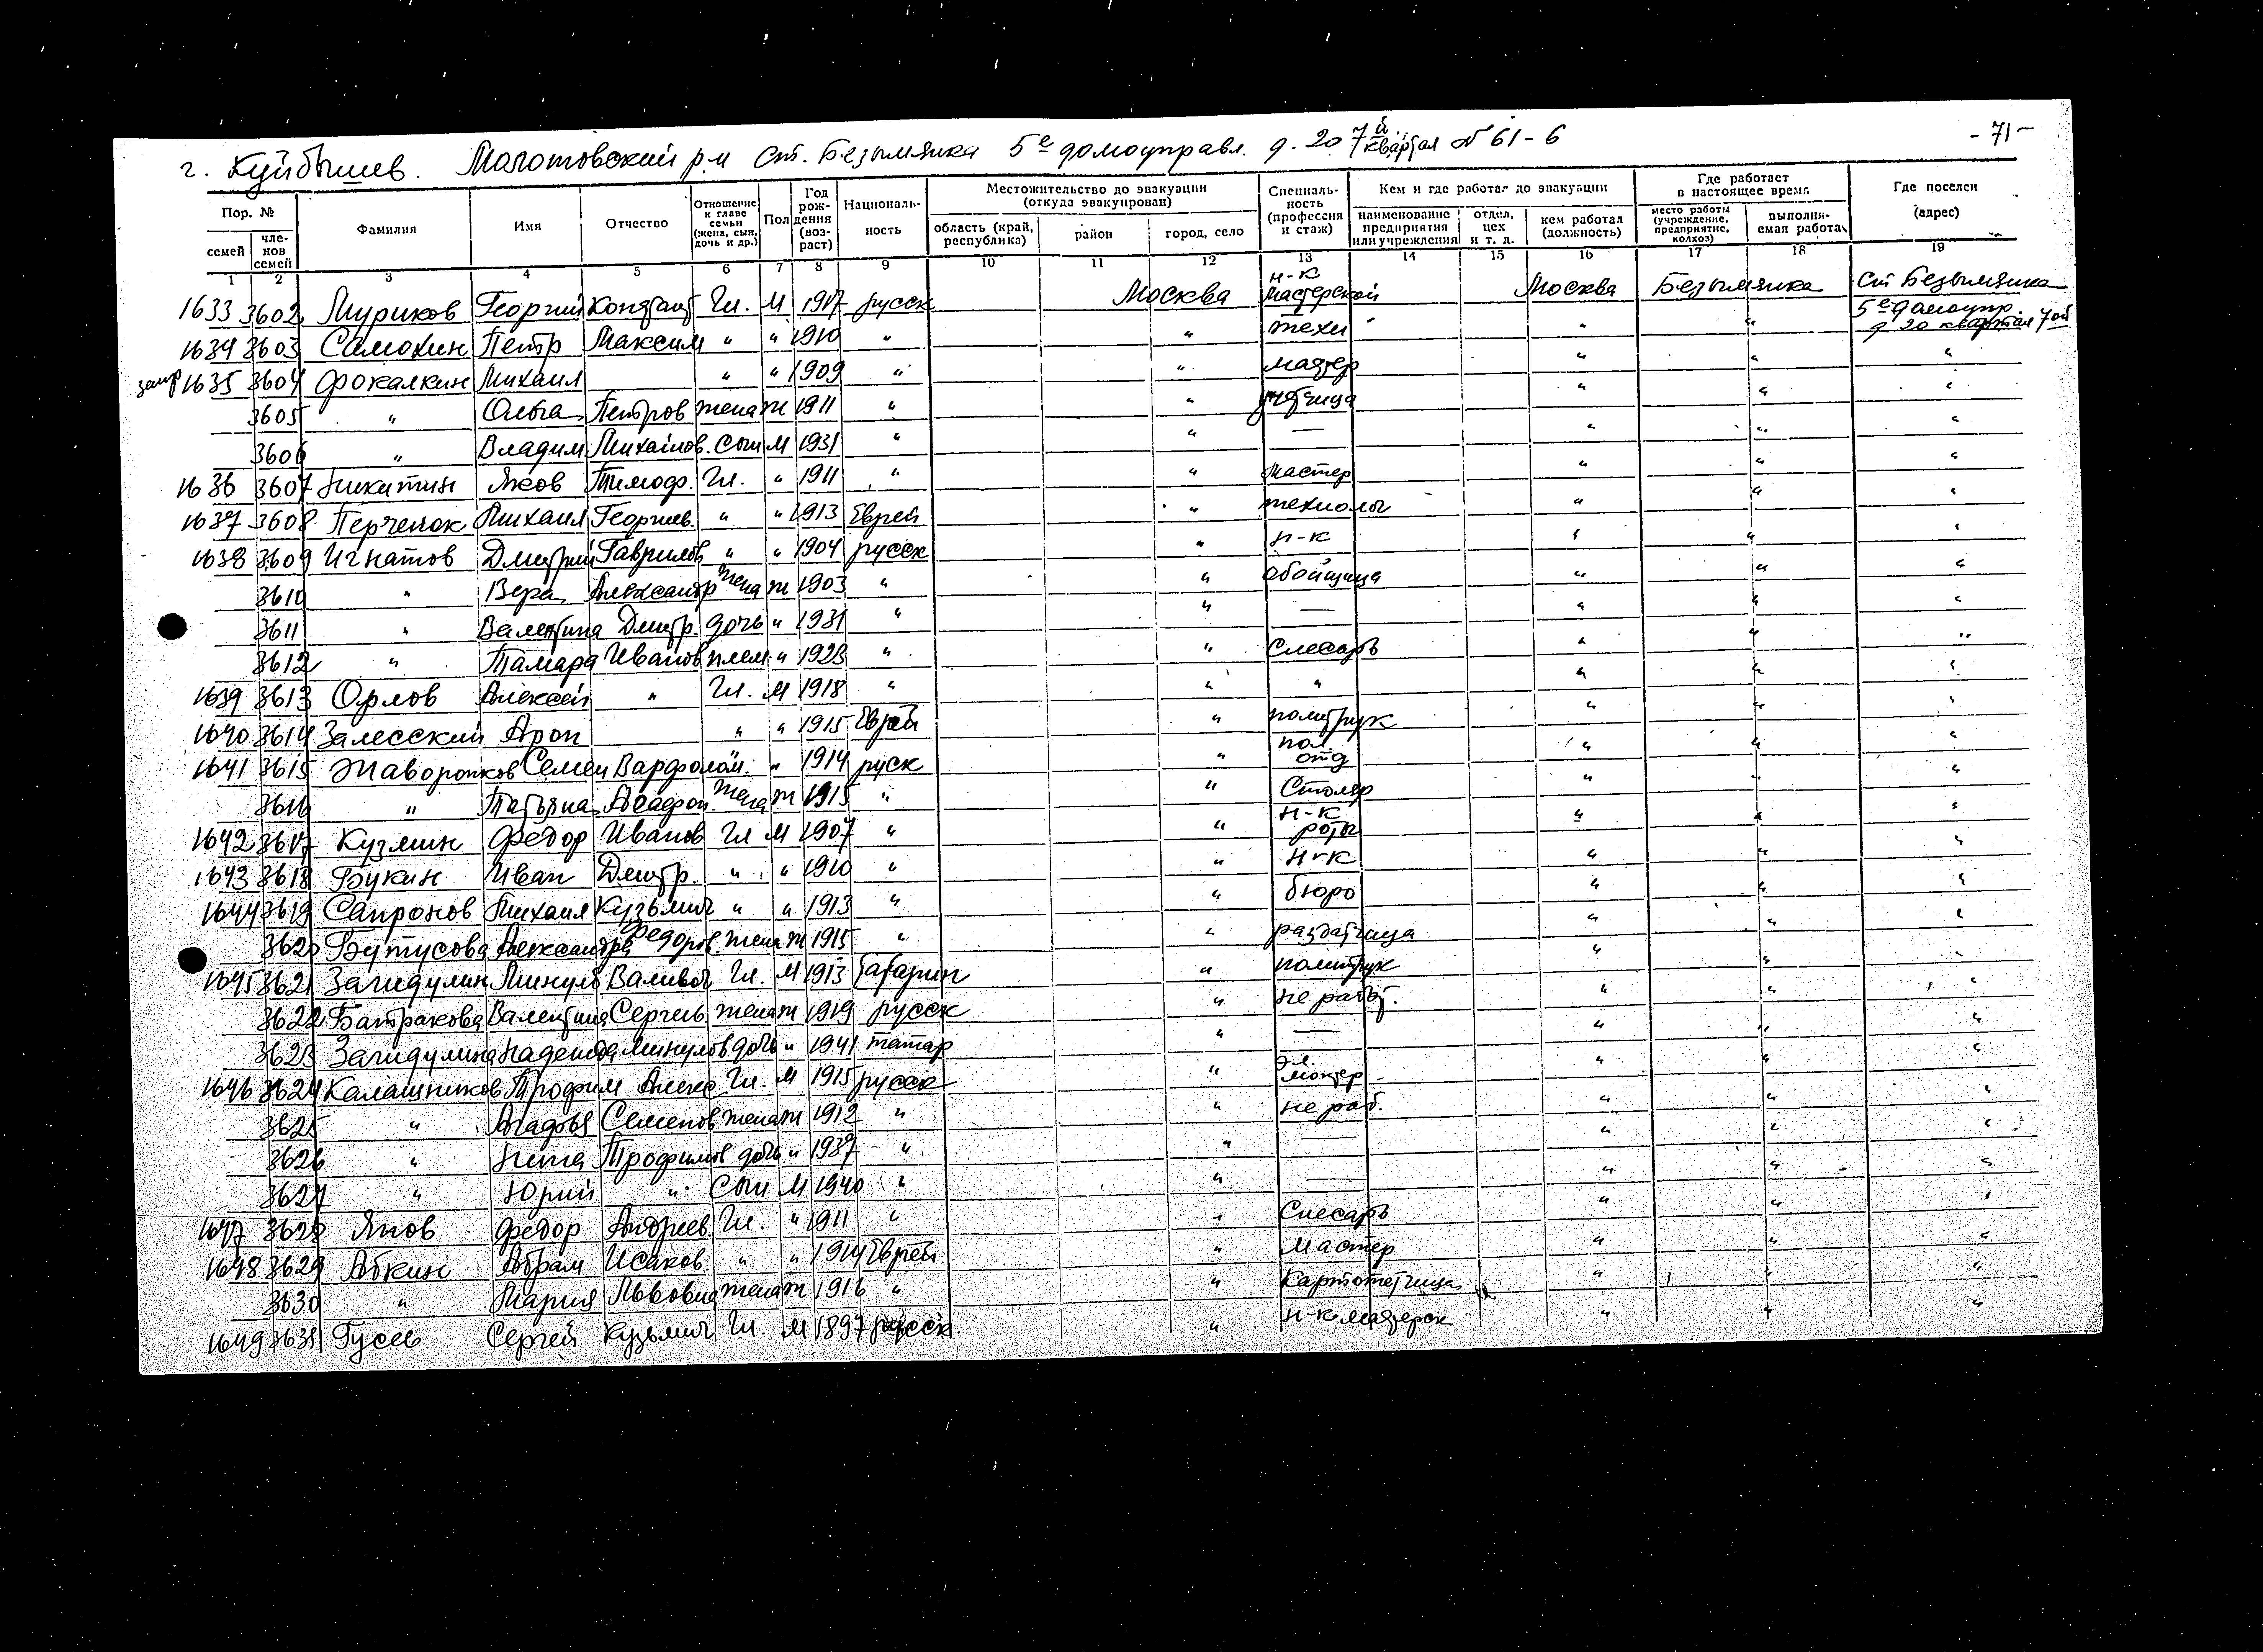 г. Куйбышев. Молотовский р-н ст. Безымянка 5е домоуправл. д. 20 7й квартал № 61-6
- 71 -
Пор. №
семей
членов семей
Фамилия
Имя
Отчество
Отношение к главе семьи (жена, сын, дочь и др.)
Пол
Год рождения (возраст)
Национальность
Местожительство до эвакуации (откуда эвакуирован)
область (край, республика)
район
город, село
Специальность (профессия и стаж)
Кем и где работал до эвакуации
наименование предприятия или учреждения
отдел, цех и т. д.
кем работал (должность)
Где работает в настоящее время
место работы (учреждение, предприятие, колхоз)
выполняемая работа
Где поселен (адрес)
1 2 3 4 5 6 7 8 9 10 11 12 13 14 15 16 17 18 19
1633 3602 Муриков Георгий Констант Гл. М 1917 русск Москва н-к мастерской Москва Безымянка ст Безымянка 5е домоупр д 20 квартал 7ой
1634 3603 Самохин Петр Максим " " 1910 " " техн " " "
1635 3604 Фокалкин Михаил " " 1909 " " мастер " " "
3605 " Ольга Петров жена ж 1911 " " " " "
3606 " Владим Михайлов. сын М 1931 " " — " " "
1636 3607 Никитин Яков Тимоф. Гл. " 1911 " " мастер " " "
1637 3608 Перченок Михаил Георгиев. " " 1913 Еврей " технолог " " "
1638 3609 Игнатов Дмитрий Гаврилов " " 1904 русск " н-к " " "
3610 " Вера Александр жена ж 1903 " " обойщица " " "
3611 " Валентина Дмитр. дочь " 1931 " " — " " "
3612 " Тамара Иванов плем " 1923 " " Слесарь " " "
1639 3613 Орлов Алексей " Гл. М 1918 " " " " " "
1640 3614 Залесский Арон " " 1915 Еврей " политрук " " "
1641 3615 Жаворонков Семен Варфолом. " 1914 руск " пол отд " " "
3616 " Татьяна Агафон. жена ж 1915 " " Столяр " " "
1642 3617 Кузмин Федор Иванов Гл М 1907 " " н-к роты " " "
1643 3618 Букин Иван Дмитр. " " 1910 " " н-к " " "
1644 3619 Сапронов Михаил Кузьмич " " 1913 " " бюро " " "
3620 Бутусова Александра Федоров. жена ж 1915 " " раздатчица " " "
1645 3621 Загидулин Минула Валивич Гл. М 1913 татарин " политрук " " "
3622 Батракова Валентина Сергеев жена ж 1919 русск " не работ. " " "
3623 Загидулина Надежда Минулов дочь " 1941 татар " — " " "
1646 3624 Калашников Трофим Алекс Гл. М 1915 русск " эл. монтер " " "
3625 " Агафья Семенов жена ж 1912 " " не раб. " " "
3626 " Нина Трофимов дочь " 1937 " " — " " "
3627 " Юрий " Сын М 1940 " " — " " "
1647 3628 Янов Федор Андреев. Гл. " 1911 " " Слесарь " " "
1648 3629 Абкин Абрам Исаков " " 1914 Еврей " Мастер " " "
3630 " Мария Львовна жена ж 1916 " " Картотетчица " " "
1649 3631 Гусев Сергей Кузьмич Гл. М 1897 русск. " н-к мастерск " " "